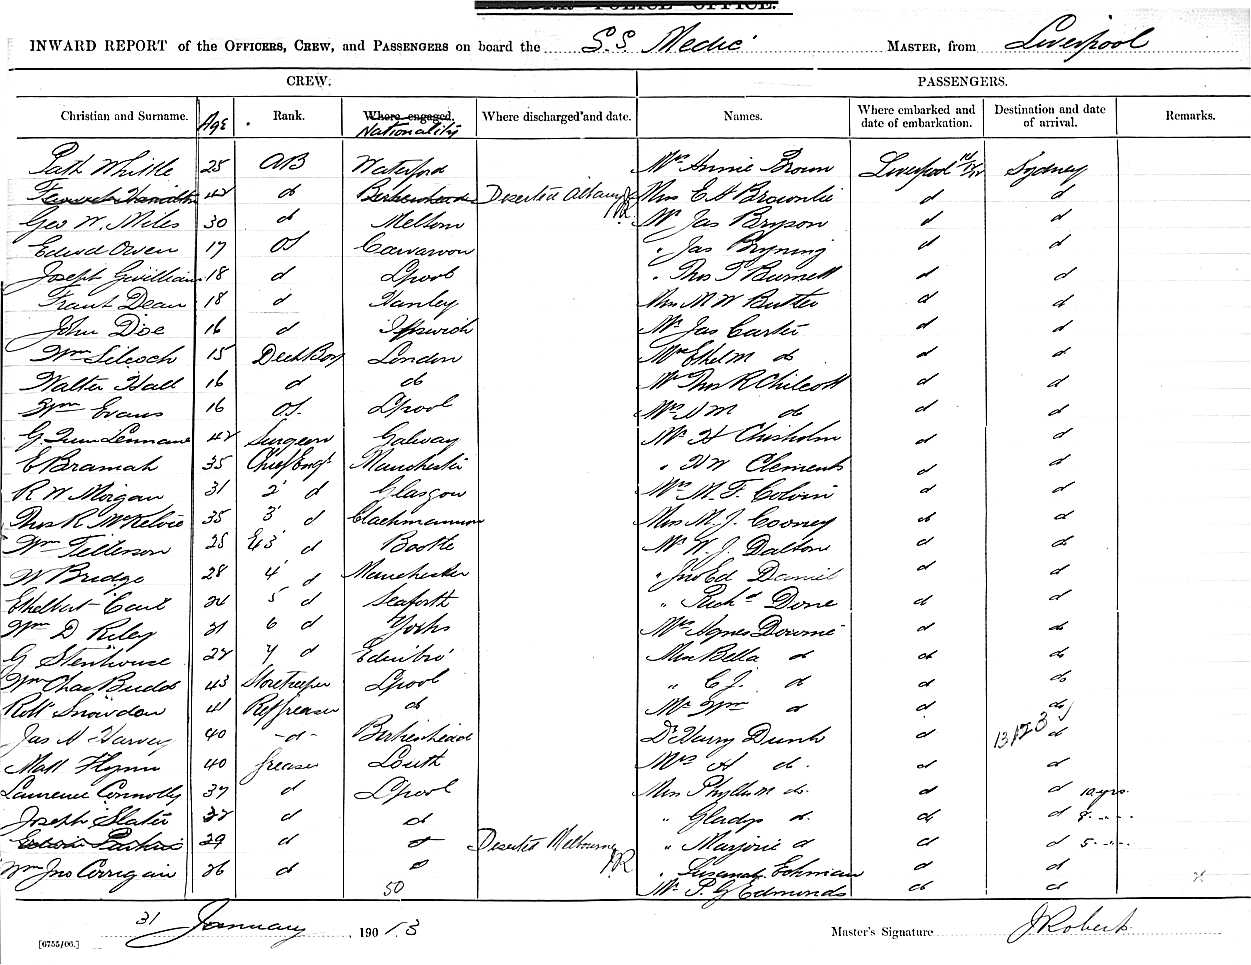 INWARD REPORT of the OFFICERS, CREW, and PASSENGERS on board the S.S. Medic MASTER, from Liverpool
CREW. PASSENGERS.
Christian and Surname. Age Rank. Where engaged. Nationality Where discharged and date. Names. Where embarked and date of embarkation. Destination and date of arrival. Remarks.
Patk Whittle 25 AB Waterford Mrs Annie Brown Liverpool Sydney
42 d Birkenhead Deserted Albany JR Miss E A Brownlie d d
Geo W. Miles 30 d Mr Jas Bryson d d
Edwd Owen 17 OS Carnarvon " Jas Bryning d d
Joseph 18 d Lpool " Thos P Burnett d d
Frank Dean 18 d Hanley Miss M W Butler d d
John Doe 16 d Ipswich Mr Jas Carter d d
Wm Silcock 15 Deck Boy London Mrs Ethel M do d d
Walter Hall 16 d do Mr Thos R Chilcott d d
Wm Evans 16 OS. Lpool Mrs do d d
G. 42 Surgeon Galway Mr H Chisholm d d
E Bramah 35 Chief Engr Manchester " H W Clements d d
R W Morgan 31 2 d Glasgow Mrs M. F. Colvin d d
Thos R McKelvie 35 3 d Clackmannan Miss M. J. Cooney d d
Wm 25 d Bootle Mr W. J. Dalton d d
W Bridge 28 4 d Manchester " Jno Ed Daniel d d
Ethelbert 24 5 d Seaforth " Richd Done d d
Wm D Riley 21 6 d Yorks Mrs Agnes Downie d do
G Stenhouse 22 7 d Edinbro' Miss Bella do d do
Wm Chas Budd 43 Storekeeper Lpool " C J. do d do
Robt Snowdon 41 Ref greaser do Mr Wm do d do
Jas A Harvey 40 -d- Birkenhead Dr Harry Dunk d 13/12/3 d
Matt Flynn 40 Greaser Louth Mrs H do. d d
Laurence Connolly 37 d Lpool Miss Phyllis M do. d d 10 yrs.
Joseph Slater 37 d d " Gladys do. d d 8 "
Edwin Parkin 29 d d Deserted Melbourne JR " Marjorie d d d 5 "
Wm Jno Corrigan 26 d d d d
50 Mr P. G Edmonds d d
31 January 1903 Master's Signature J Roberts
[6755/06.]